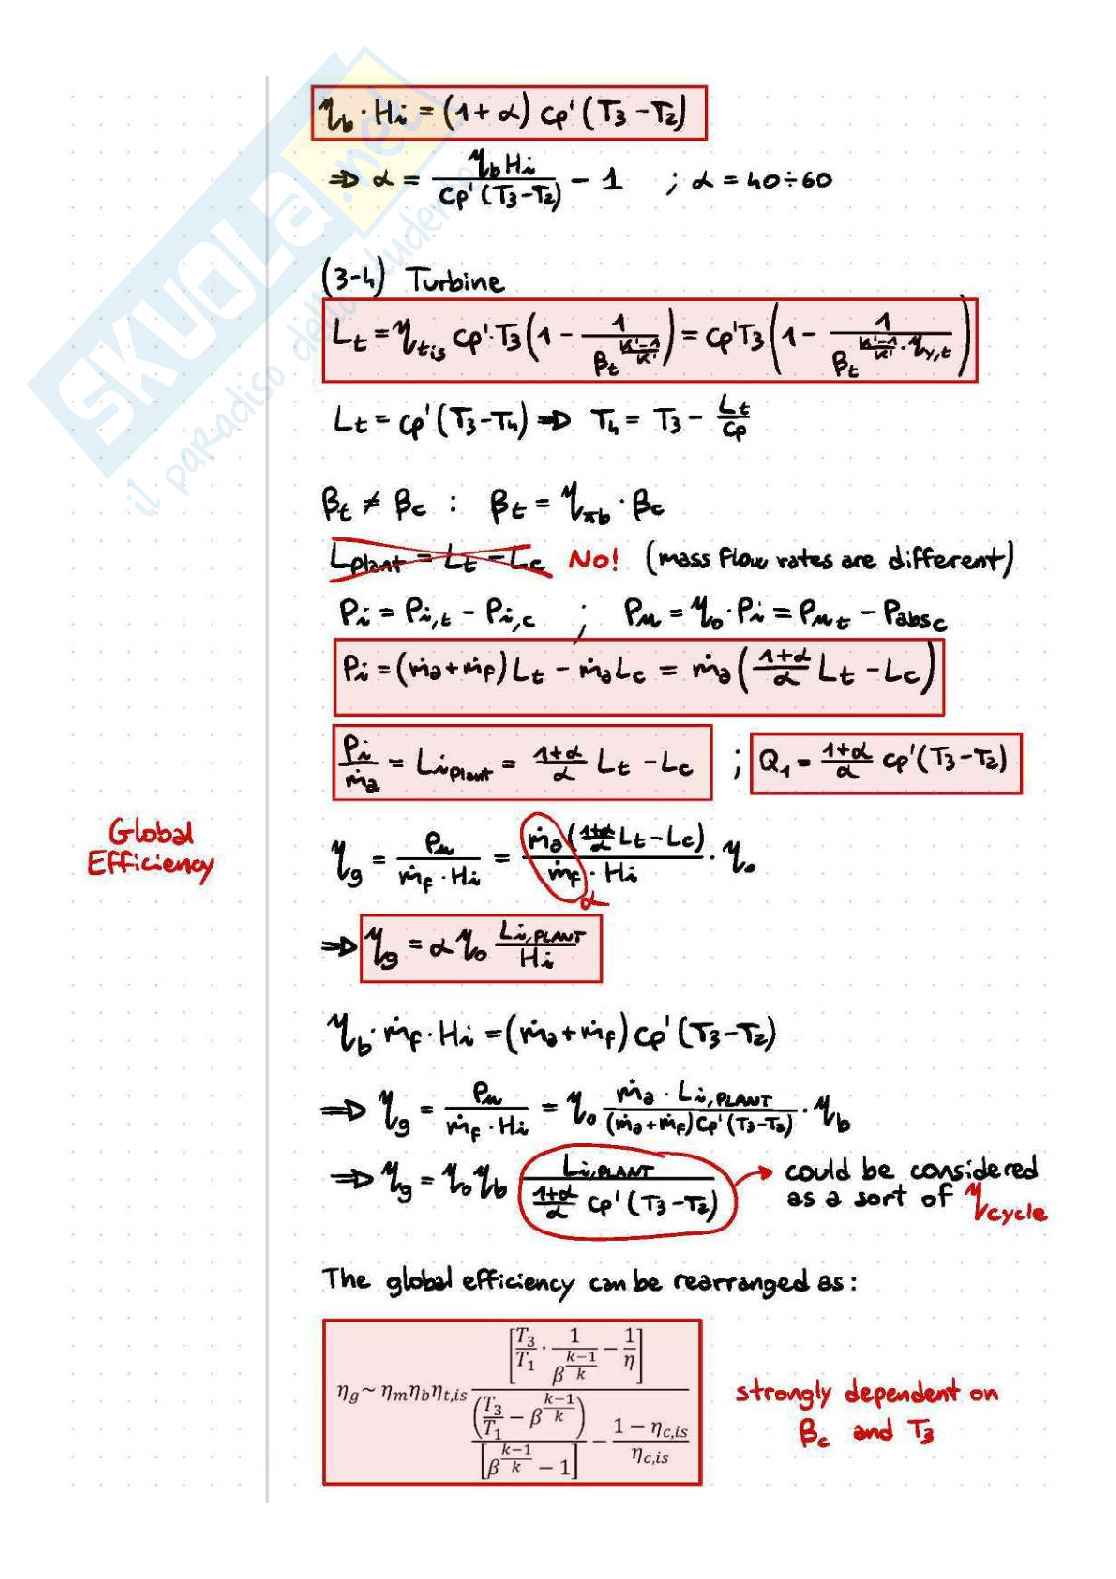 η_b · Hi = (1 + α) cp' (T3 - T2)
⇒ α = η_b Hi / cp' (T3 - T2) - 1 ; α = 40÷60
(3-4) Turbine
Lt = η_tis cp' · T3 (1 - 1 / βt^((k'-1)/k')) = cp' T3 (1 - 1 / βt^((k'-1)/k' · η_y,t))
Lt = cp' (T3 - T4) ⇒ T4 = T3 - Lt / cp
βt ≠ βc : βt = η_πb · βc
Lplant = Lt - Lc No! (mass flow rates are different)
Pi = Pi,t - Pi,c ; Pu = η_o · Pi = Pu_t - Pabs_c
Pi = (ṁa + ṁf) Lt - ṁa Lc = ṁa ((1+α)/α Lt - Lc)
Pi / ṁa = Li_plant = (1+α)/α Lt - Lc ; Q1 = (1+α)/α cp' (T3 - T2)
Global
Efficiency
η_g = Pu / ṁf · Hi = ṁa ((1+α)/α Lt - Lc) / ṁf · Hi · η_o
α
⇒ η_g = α η_o Li,PLANT / Hi
η_b · ṁf · Hi = (ṁa + ṁf) cp' (T3 - T2)
⇒ η_g = Pu / ṁf · Hi = η_o ṁa · Li,PLANT / (ṁa + ṁf) cp' (T3 - T2) · η_b
⇒ η_g = η_o η_b Li,PLANT / (1+α)/α cp' (T3 - T2) → could be considered
as a sort of η_cycle
The global efficiency can be rearranged as:
η_g ~ η_m η_b η_t,is [T3/T1 · 1/β^((k-1)/k) - 1/η] / ((T3/T1 - β^((k-1)/k)) / [β^((k-1)/k) - 1] - (1 - η_c,is)/η_c,is)
strongly dependent on
βc and T3
SKUOLA.net
il paradiso dello studente